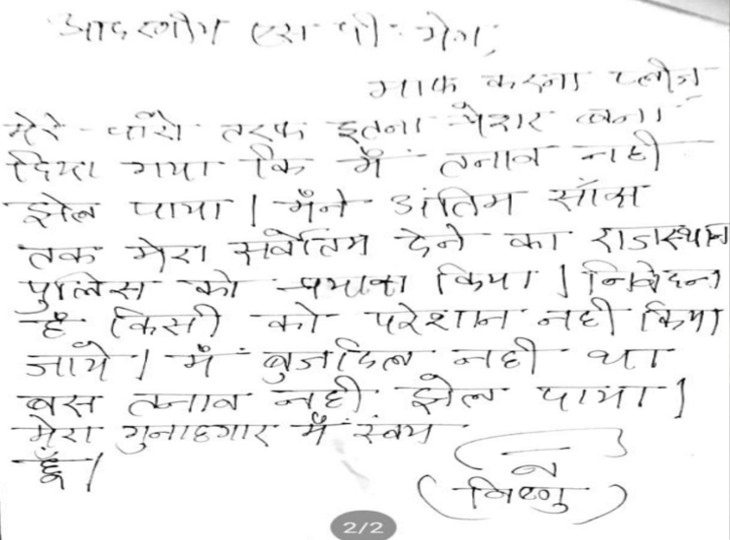 आदरणीय एस पी मैम,
माफ करना प्लीज
मेरे चारों तरफ इतना प्रेशर बना
दिया गया कि मैं तनाव नही
झेल पाया। मैंने अंतिम साँस
तक मेरा सर्वोतम देने का राजस्थान
पुलिस को प्रयास किया। निवेदन
है किसी को परेशान नही किया
जाये। मैं बुजदिल नही था
बस तनाव नही झेल पाया।
मेरा गुनाहगार मैं स्वंय
हूँ।
(विष्णु)
2/2